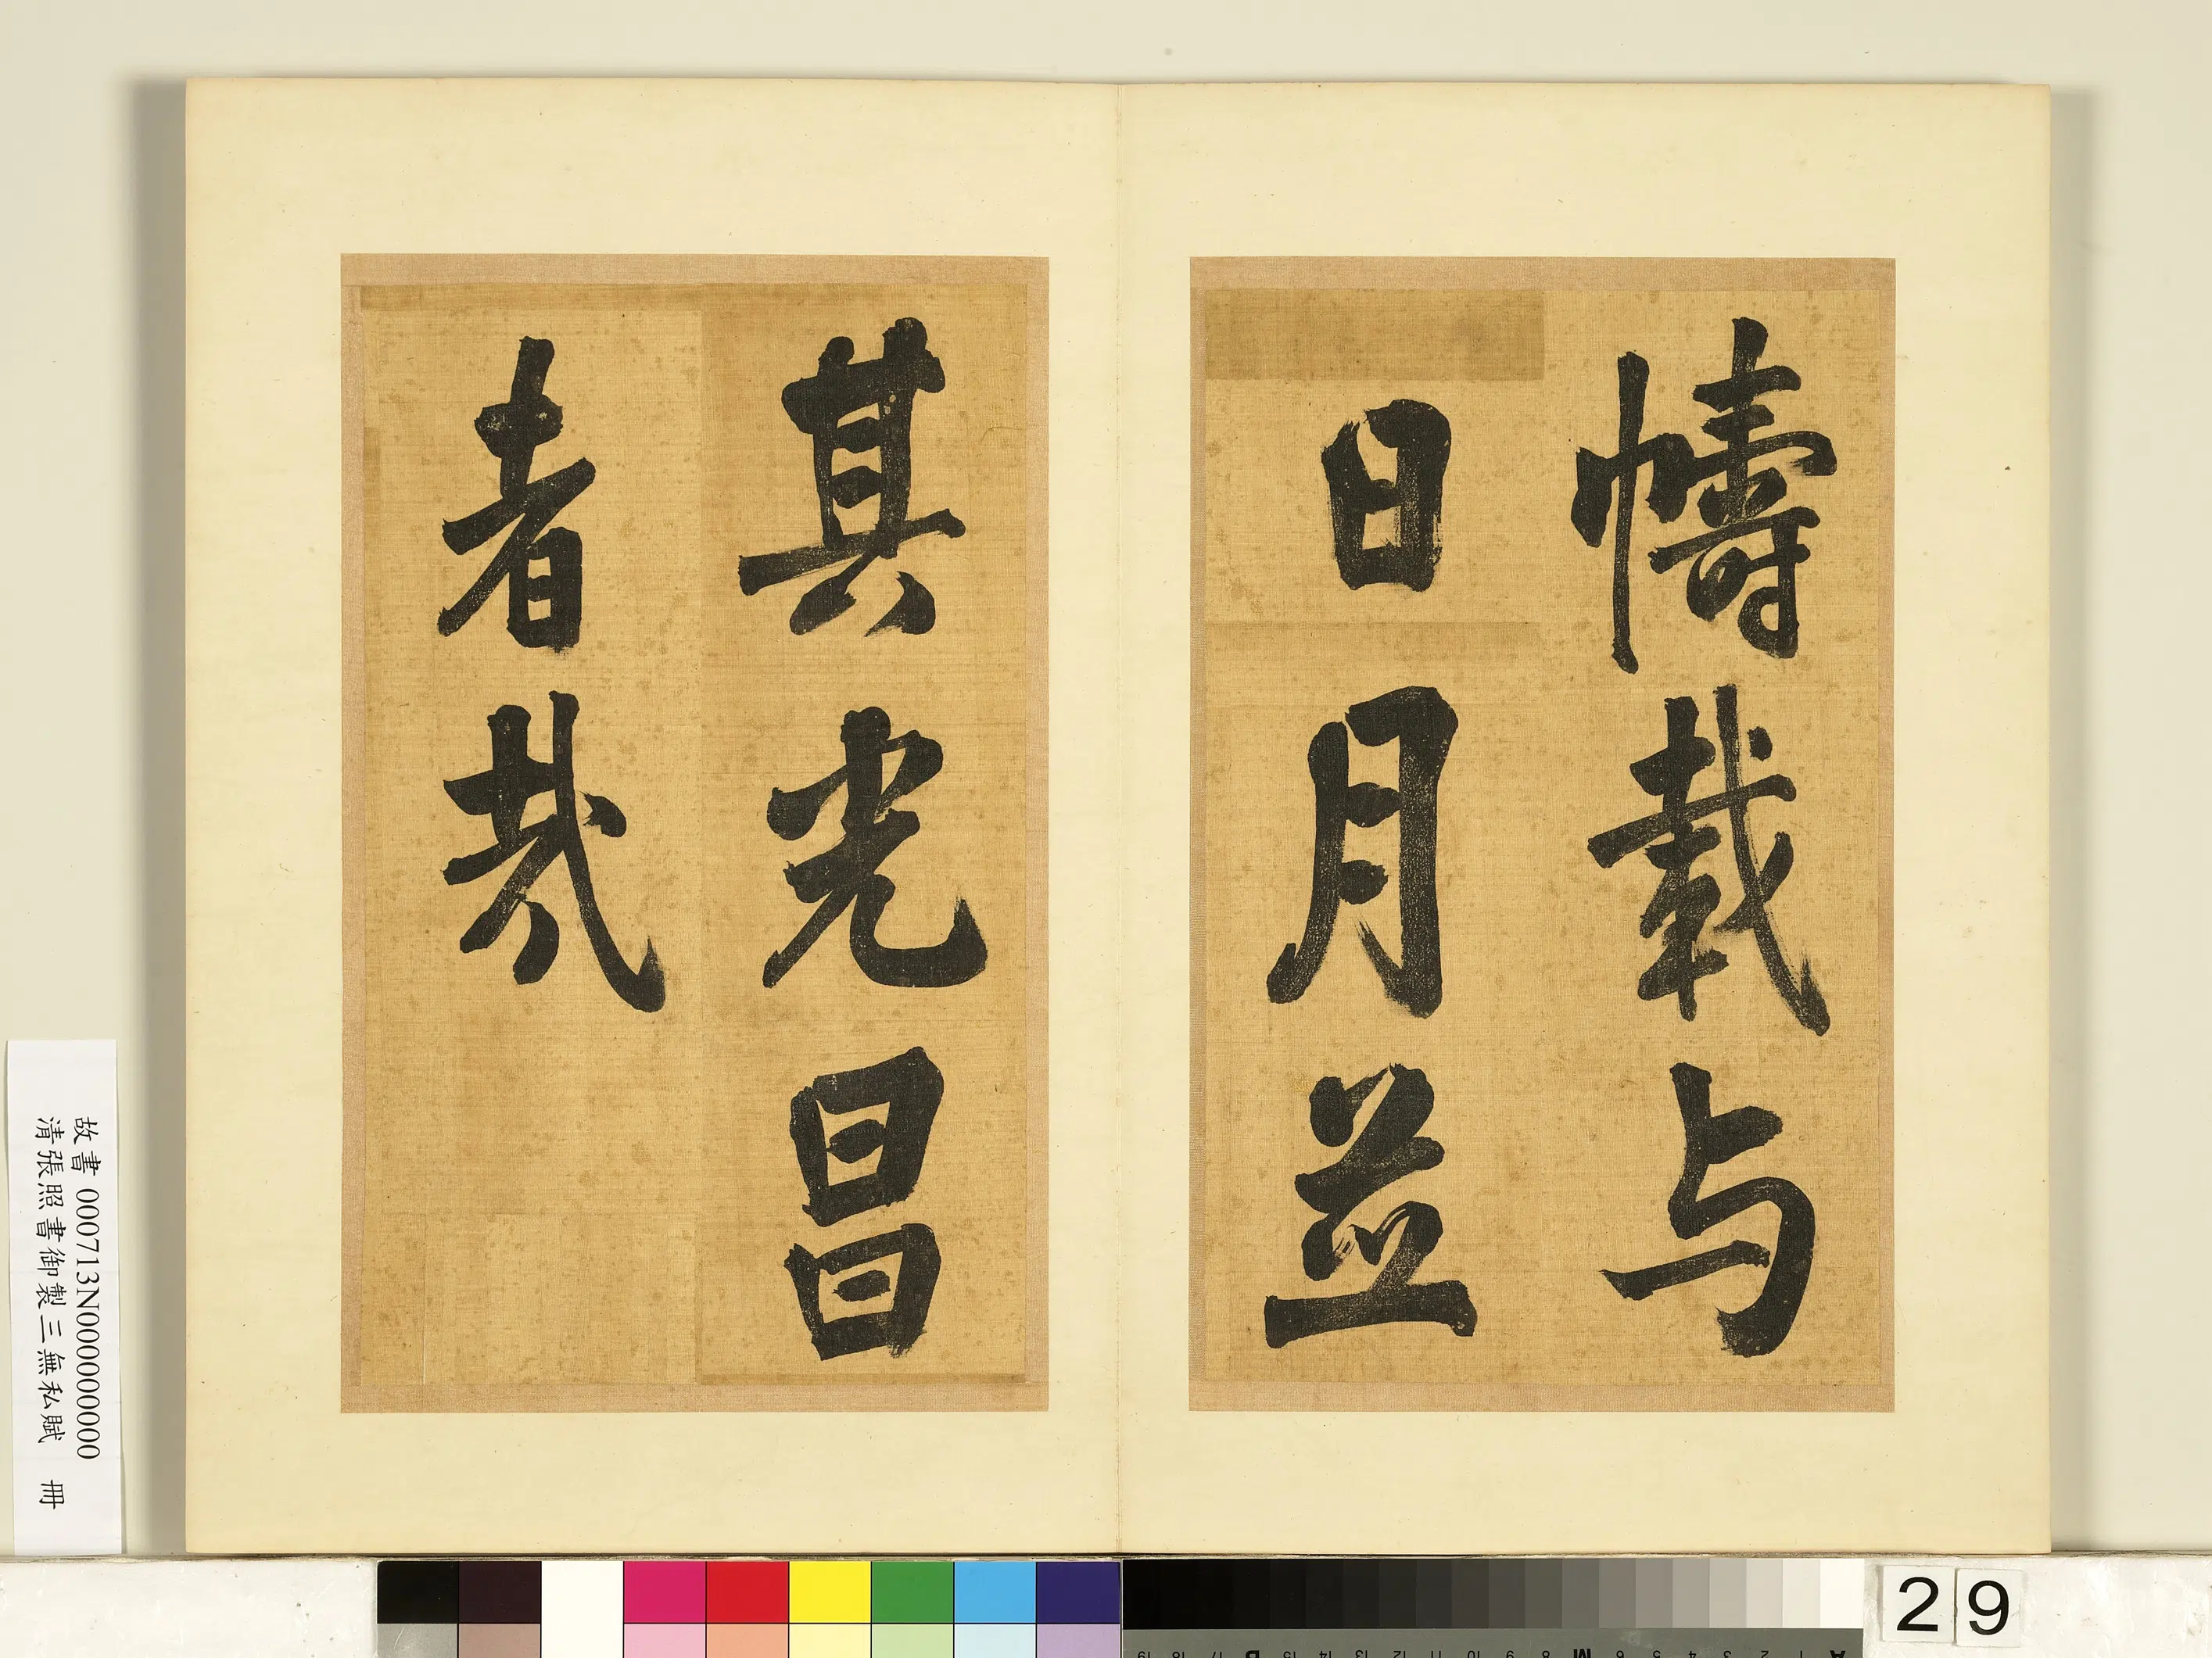 幬載与
日月並
其光昌
者哉
故書 000713N000000000
清張照書御製三無私賦 冊
29